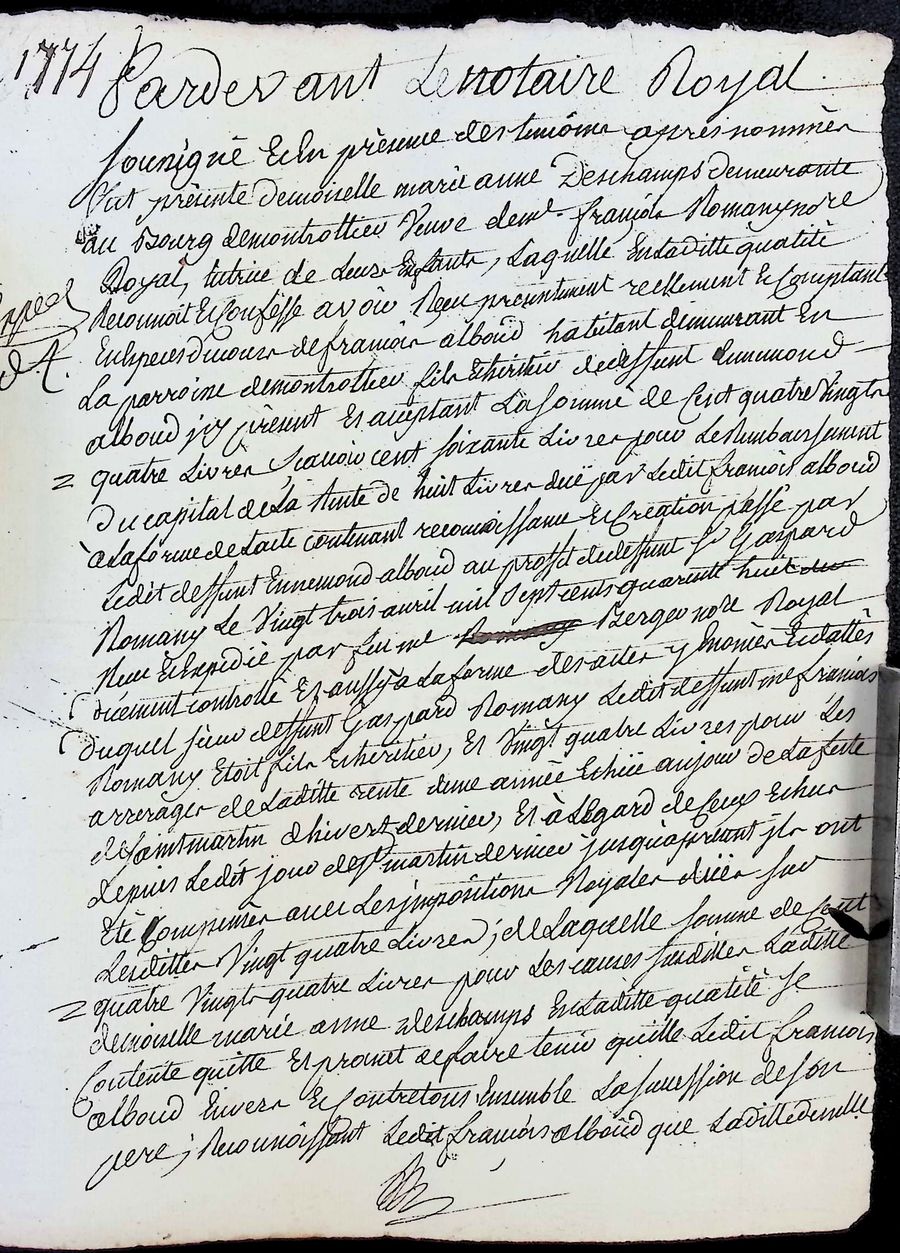 1774 Pardevant Le notaire Royal
soussigné Et En présence des temoins après nommés
fut présente demoiselle marie anne Deschamps demeurante
au Bourg de montrottier Veuve de me françois Romany nore
Royal, tutrice de Leurs Enfants, Laquelle En Laditte qualité
Reconnoit Et Confesse avoir Reçu présentement reellement Et Comptant
En Especes du cours de francois alboud habitant demeurant En
La parroisse de montrottier fils Et heritier de deffunt Ennemond
alboud jcy présent Et acceptant La somme de Cent quatre Vingts
quatre Livres Scavoir cent soixante Livres pour Le Rembourssement
Du capital de La Rente de huit Livres duë par Ledit francois alboud
à La forme de L'acte contenant reconnoissance Et Création passé par
Ledit deffunt Ennemond alboud au proffit de deffunt Sr Gaspard
Romany Le Vingt trois avril mil Sept cents quarente huit
Reçu Et Expedié par feu me Berger nore Royal
düement controllé Et aussy à La forme des actes y Enoncés Et dattés
Duquel sieur deffunt Gaspard Romany Ledit deffunt me francois
Romany Etoit fils Et heritier, Et Vingt quatre Livres pour Les
arrerages de Laditte rente d'une année Echüe au jour de La feste
de saint martin d'hivert dernier, Et à L'égard de Ceux Echus
depuis Ledit jour de St martin dernier jusqu'apresent jls ont
Eté Compensés avec Les jmpositions Royales düës sur
Lesdittes Vingt quatre Livres; de Laquelle somme de Cent
quatre Vingts quatre Livres pour Les causes susdittes Laditte
demoiselle marie anne Deschamps En Laditte qualité se
Contente quitte Et promet de faire tenir quitte Ledit francois
alboud Envers Et Contre tous Ensemble La succession de son
pere; Reconnoissant Ledit francois alboud que Laditte demlle